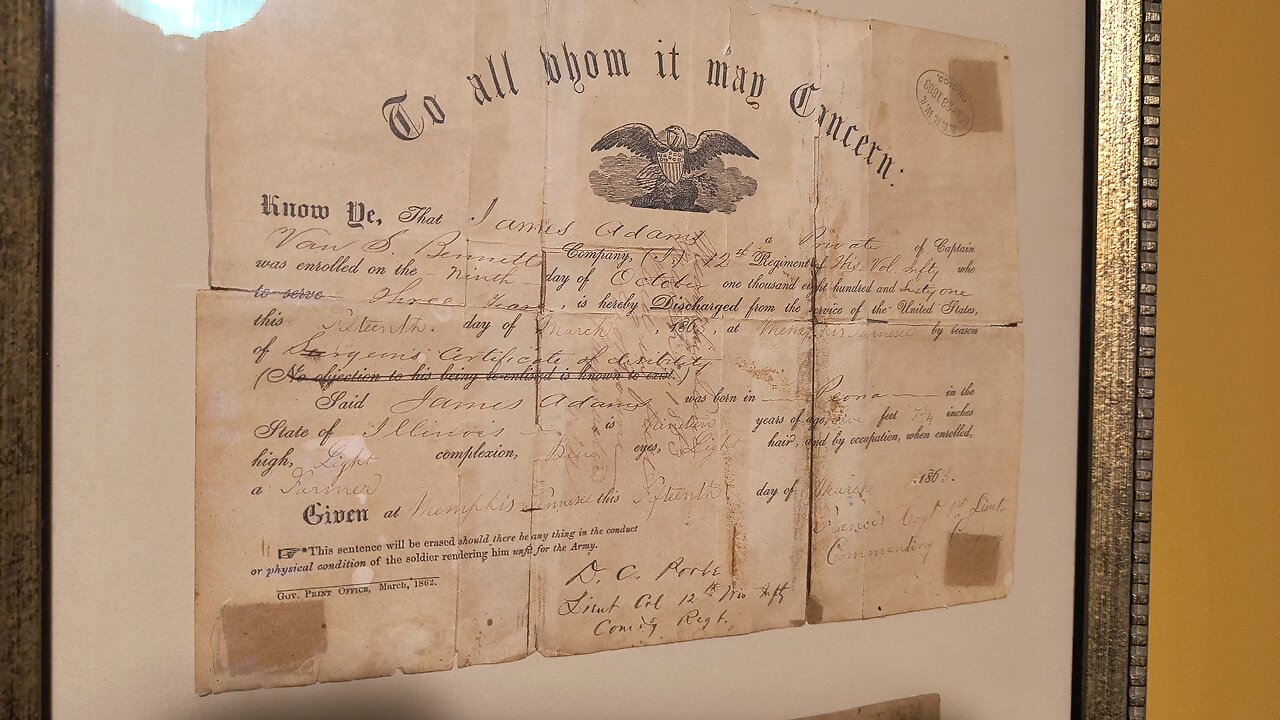 To all whom it may Concern:
Know Ye, That James Adams a Private of Captain
Van S. Company, 12th Regiment of Wis. Vol. Infty who
was enrolled on the Ninth day of October one thousand eight hundred and sixty one
to serve Three Years, is hereby Discharged from the service of the United States,
this Fifteenth day of March, 186, at Memphis Tennessee by reason
of Surgeons Certificate of disability
(No objection to his being re-enlisted is known to exist.)
Said James Adams was born in in the
State of Illinois is years of age, feet inches
high, Light complexion, Blue eyes, Light hair, and by occupation, when enrolled,
a Farmer
Given at Memphis Tennessee this Fifteenth day of March 1863.
Francis 1st Lieut.
Commanding
☞*This sentence will be erased should there be any thing in the conduct
or physical condition of the soldier rendering him unfit for the Army.
Gov. Print Office, March, 1862.
D. C.
Lieut Col 12th Wis Infty
Comdg Regt.